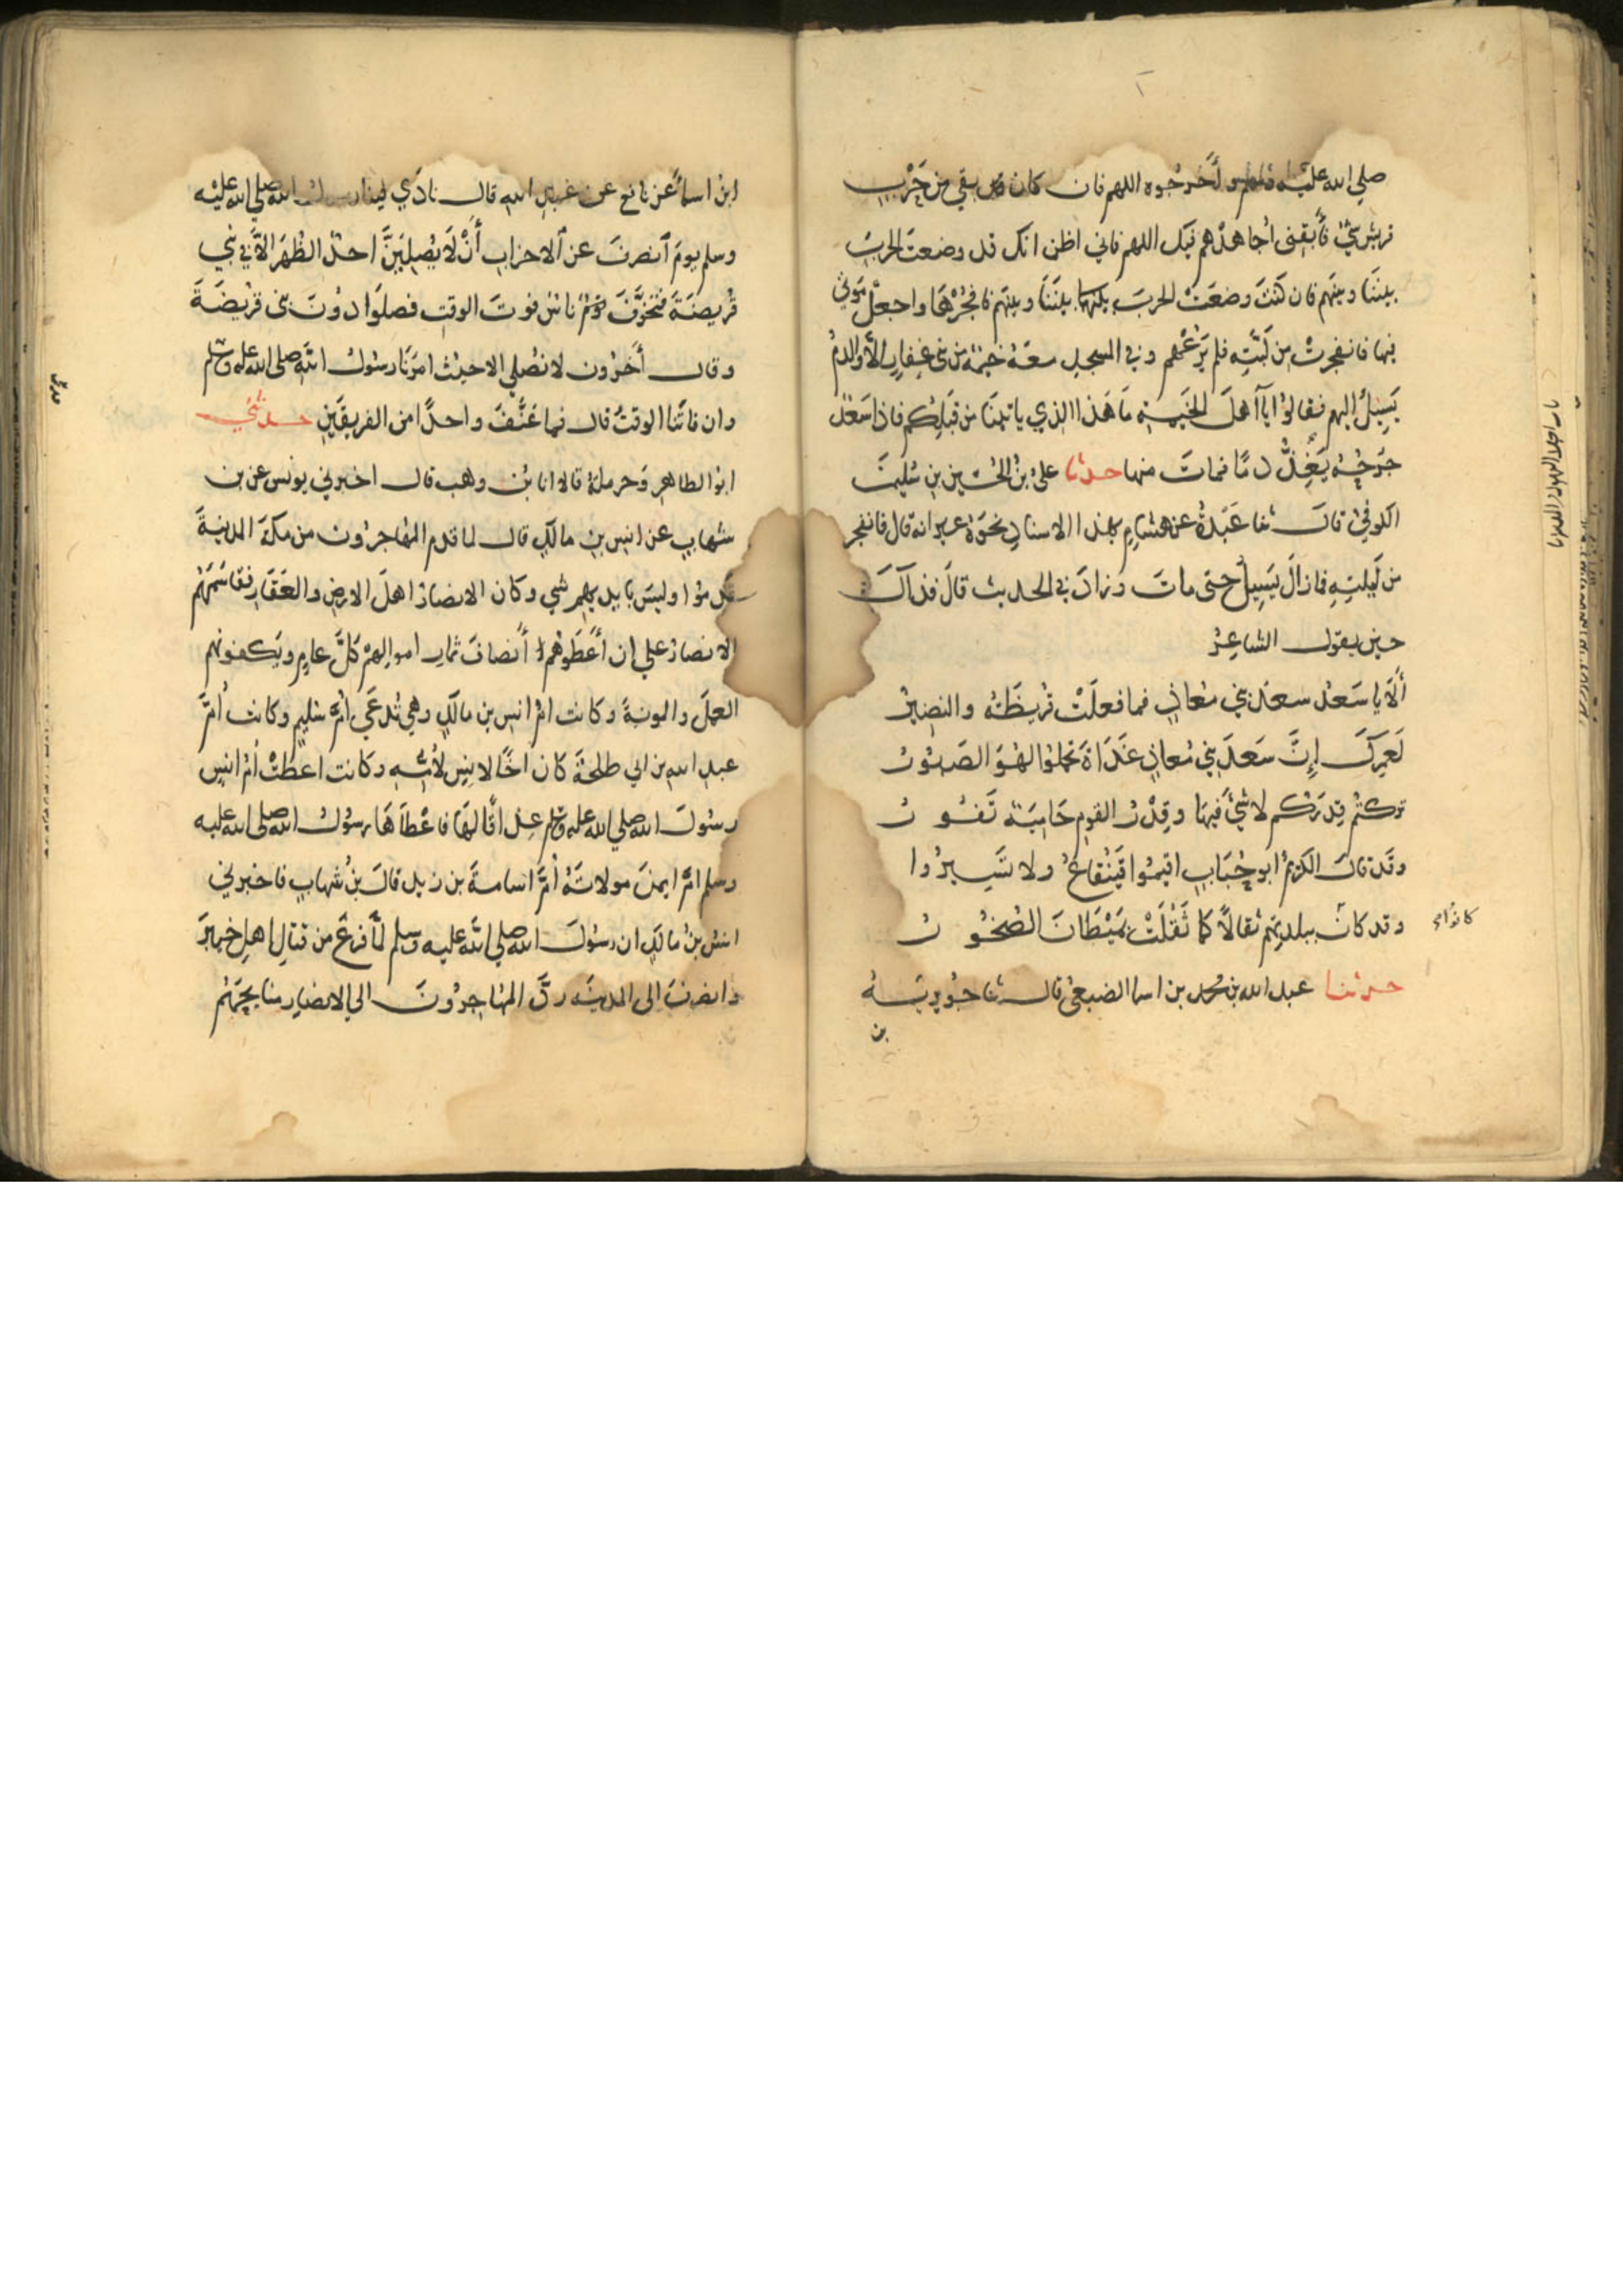 صلي الله عليه وسلم واخرجوه اللهم فان كان بقي من حرب
قريش شئ فأبقني اجاهدهم فيك اللهم فاني اظن انك قد وضعت الحرب
بيننا وبينهم فان كنت وضعت الحرب بيننا وبينهم فافجرها واجعل موتي
فيها فانفجرت من لبته فلم يرعهم وفي المسجد معه خيمة من بني غفار الا والدم
يسيل اليهم فقالوا يآ اهل الخيمة ما هذا الذي ياتينا من قبلكم فاذا سعد
جرحه يغذ دما فمات منها حدثنا علي بن الحسين بن سليمن
الكوفي قال ثنا عبدة عن هشام بهذا الاسناد نحوه غير انه قال فانفجر
من ليلته فما زال يسيل حتى مات وزاد في الحديث قال فذاك
حين يقول الشاعر
ألا يا سعد سعد بني معاذ فما فعلت قريظة والنضير
لعمرك إن سعد بني معاذ غداة تحملوا لهو الصبور
تركتم قدركم لا شئ فيها وقدر القوم حامية تفور
وقد قال الكريم ابو حباب اقيموا قينقاع ولا تسيروا
وقد كان ببلدتهم ثقالا كما ثقلت بميطان الصخور
كانوا
حدثنا عبد الله بن محمد بن اسما الضبعي قال ثنا جويرية
بن
ابن اسما عن نافع عن عبد الله قال نادي فينا رسول الله صلي الله عليه
وسلم يوم انصرف عن الاحزاب أن لا يصلين احد الظهر الا في بني
قريضة فتخوف ناس فوت الوقت فصلوا دون بني قريضة
وقال أخرون لا نصلي الا حيث امرنا رسول الله صلي الله عليه وسلم
وان فاتنا الوقت قال فما عنف واحدا من الفريقين حدثني
ابوا الطاهر وحرملة قالا انا بن وهب قال اخبرني يونس عن بن
شهاب عن انس بن مالك قال لما قدم المهاجرون من مكة المدينة
قدموا وليس بايديهم شي وكان الانصار اهل الارض والعقار فقاسمهم
الانصار علي ان أعطوهم أنصاف ثمار اموالهم كل عام ويكفونهم
العمل والمونة وكانت ام انس بن مالك وهي تدعي ام سليم وكانت أم
عبد الله بن ابي طلحة كان اخا لانس لأمه وكانت اعطت ام انس
رسول الله صلي الله عليه وسلم عذاقا لها فاعطاها رسول الله صلي الله عليه
وسلم ام ايمن مولاته أم اسامة بن زيد قال بن شهاب فاخبرني
انس بن مالك ان رسول الله صلي الله عليه وسلم لما فرغ من قتال اهل خيبر
وانصرف الى المدينه رد المهاجرون الي الانصار منايحهم